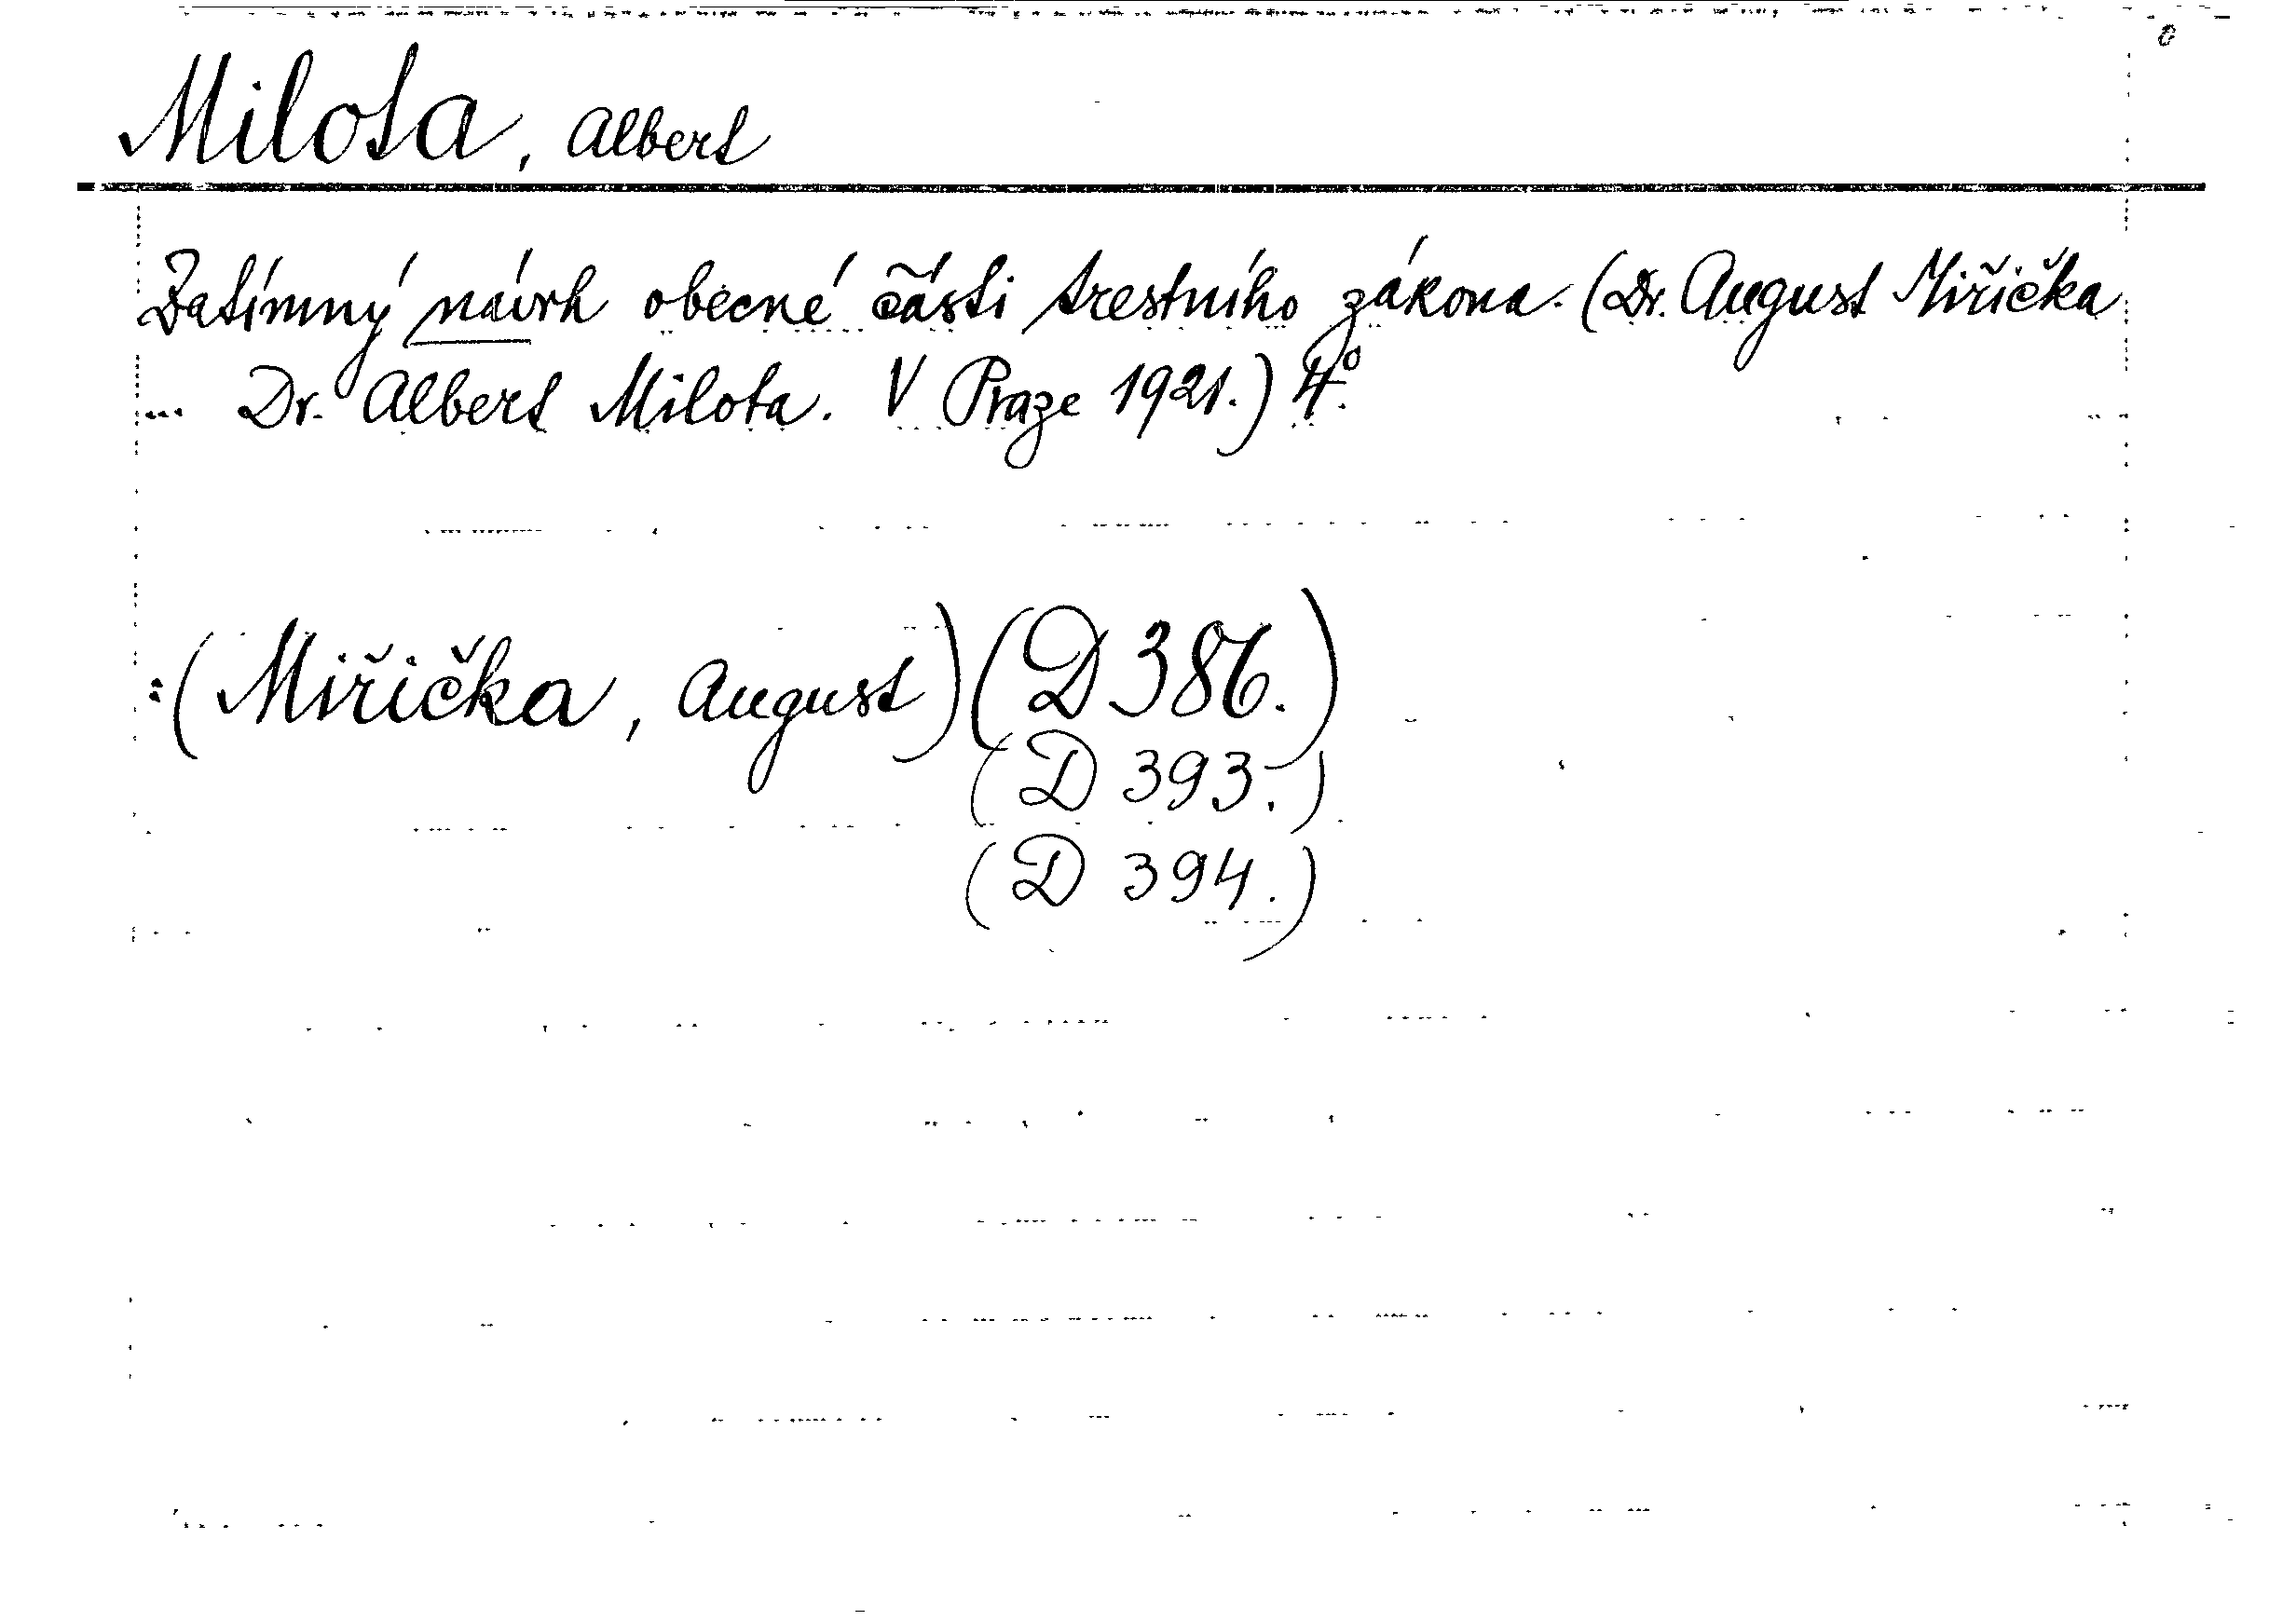 Milota, Albert
Zatímný návrh obecné části trestního zákona. (Dr. August Miřička
... Dr. Albert Milota. V Praze 1921.) 4°.
:(Miřička, August) (D 386.)
(D 393.)
(D 394.)